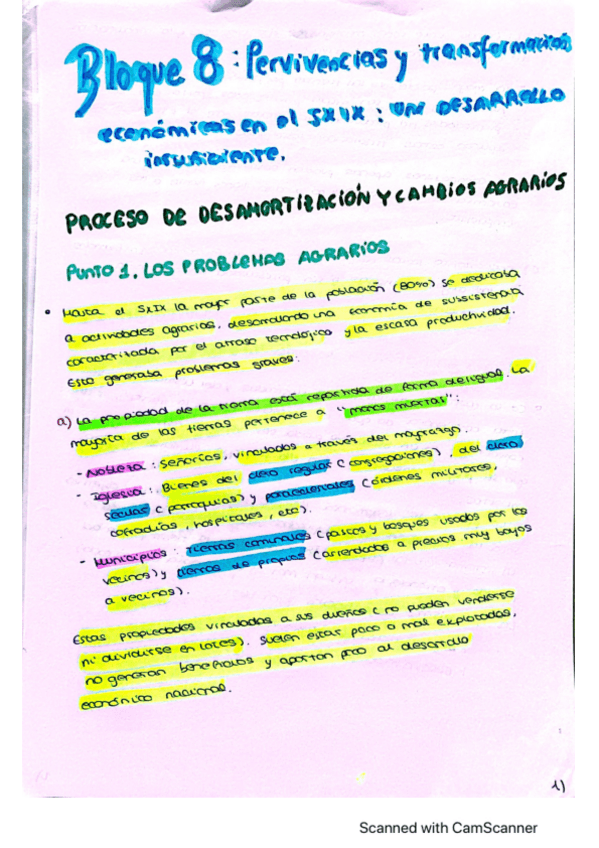 Bloque 8: Pervivencias y transformaciones
económicas en el SXIX: un DESARROLLO
insuficiente.
PROCESO DE DESAMORTIZACIÓN Y CAMBIOS AGRARIOS
Punto 1. LOS PROBLEMAS AGRARIOS
• Hasta el SXIX la mayor parte de la población (80%) se dedicaba
a actividades agrarias, desarrollando una economía de subsistencia
caracterizada por el atraso tecnológico y la escasa productividad.
Esto generaba problemas graves:
a) La propiedad de la tierra está repartida de forma desigual. La
mayoría de las tierras pertenece a "manos muertas":
- Nobleza: señoríos, vinculados a través del mayorazgo.
- Iglesia: Bienes del clero regular (congregaciones), del clero
secular (parroquias) y paraeclesiales (órdenes militares,
cofradías, hospitales, etc).
- Municipios: Tierras comunales (pastos y bosques usados por los
vecinos) y tierras de propios (arrendados a precios muy bajos
a vecinos).
Estas propiedades vinculadas a sus dueños (no pueden venderse
ni dividirse en lotes). Suelen estar poco o mal explotadas,
no generan beneficios y aportan poco al desarrollo
económico nacional.
1)
Scanned with CamScanner